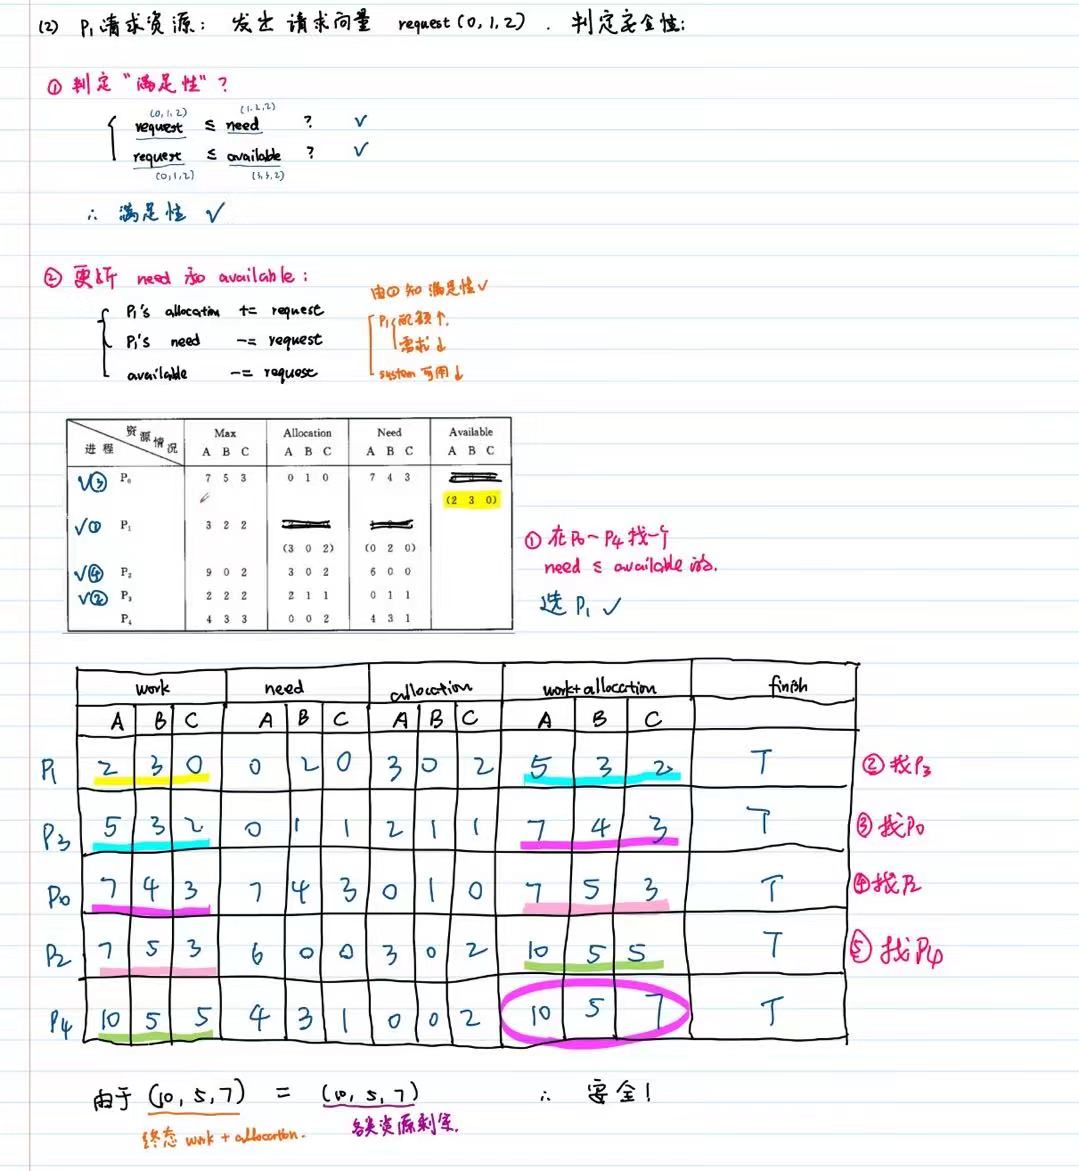 (2) P₁请求资源： 发出 请求向量 request(0,1,2). 判定安全性:
① 判定"满足性"?
(0,1,2) (1,2,2)
request ≤ need ? √
request ≤ available ? √
(0,1,2) (3,3,2)
∴ 满足性 √
② 更新 need 和 available:
由①知 满足性√
P₁'s allocation += request
P₁配额↑.
P₁'s need -= request
需求↓
available -= request
system可用↓
资源情况 Max Allocation Need Available
进程 A B C A B C A B C A B C
√③ P₀ 7 5 3 0 1 0 7 4 3
(2 3 0)
√① P₁ 3 2 2
(3 0 2) (0 2 0)
① 在P₀~P₄找一个
need ≤ available 的.
√④ P₂ 9 0 2 3 0 2 6 0 0
√② P₃ 2 2 2 2 1 1 0 1 1
选 P₁ √
P₄ 4 3 3 0 0 2 4 3 1
work need allocation work+allocation finish
A B C A B C A B C A B C
P₁ 2 3 0 0 2 0 3 0 2 5 3 2 T ②找P₃
P₃ 5 3 2 0 1 1 2 1 1 7 4 3 T ③找P₀
P₀ 7 4 3 7 4 3 0 1 0 7 5 3 T ④找P₂
P₂ 7 5 3 6 0 0 3 0 2 10 5 5 T ⑤找P₄
P₄ 10 5 5 4 3 1 0 0 2 10 5 7 T
由于 (10,5,7) = (10,5,7) ∴ 安全!
终态 work + allocation. 各类资源剩余.